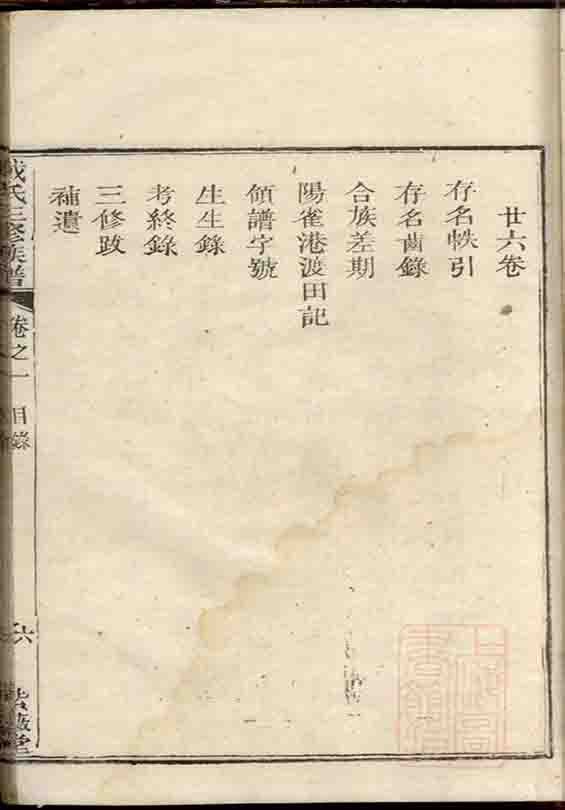 廿六卷
存名帙引
存名齒錄
合族差期
陽雀港渡田記
領譜字號
生生錄
考終錄
三修跋
補遺
氏三修族譜
卷之一
目錄
六